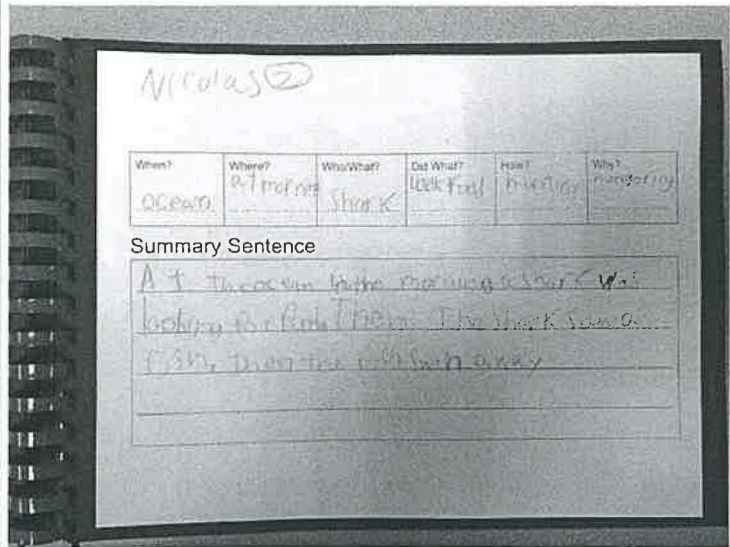 Nicolas 2
When? Where? Who/What? Did What? How? Why?
ocean morning Shark look food hunting
Summary Sentence
At the ocean in the morning a shark was
looking for food Then The shark saw a
fish, then the fish swam away